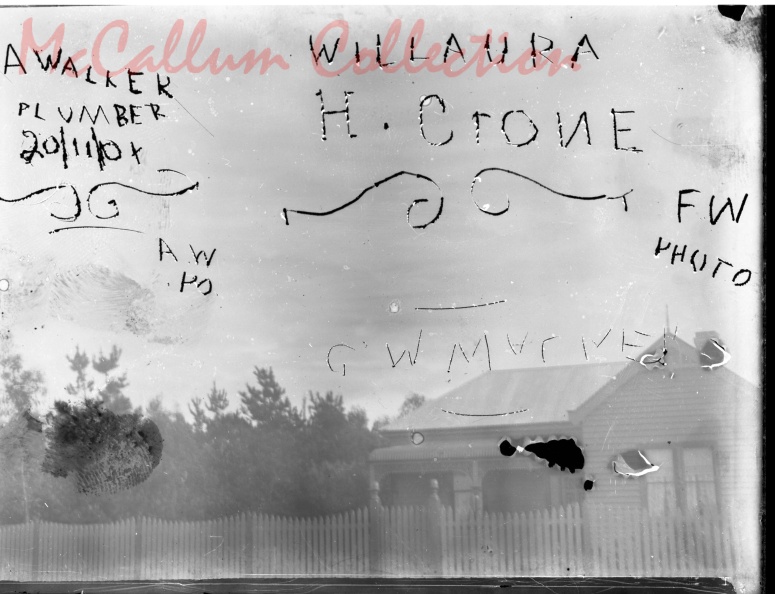 McCallum Collection
A WALKER
PLUMBER
20/11/0
WILLAURA
H. CTONE
FW
PHOTO
A.W
G W